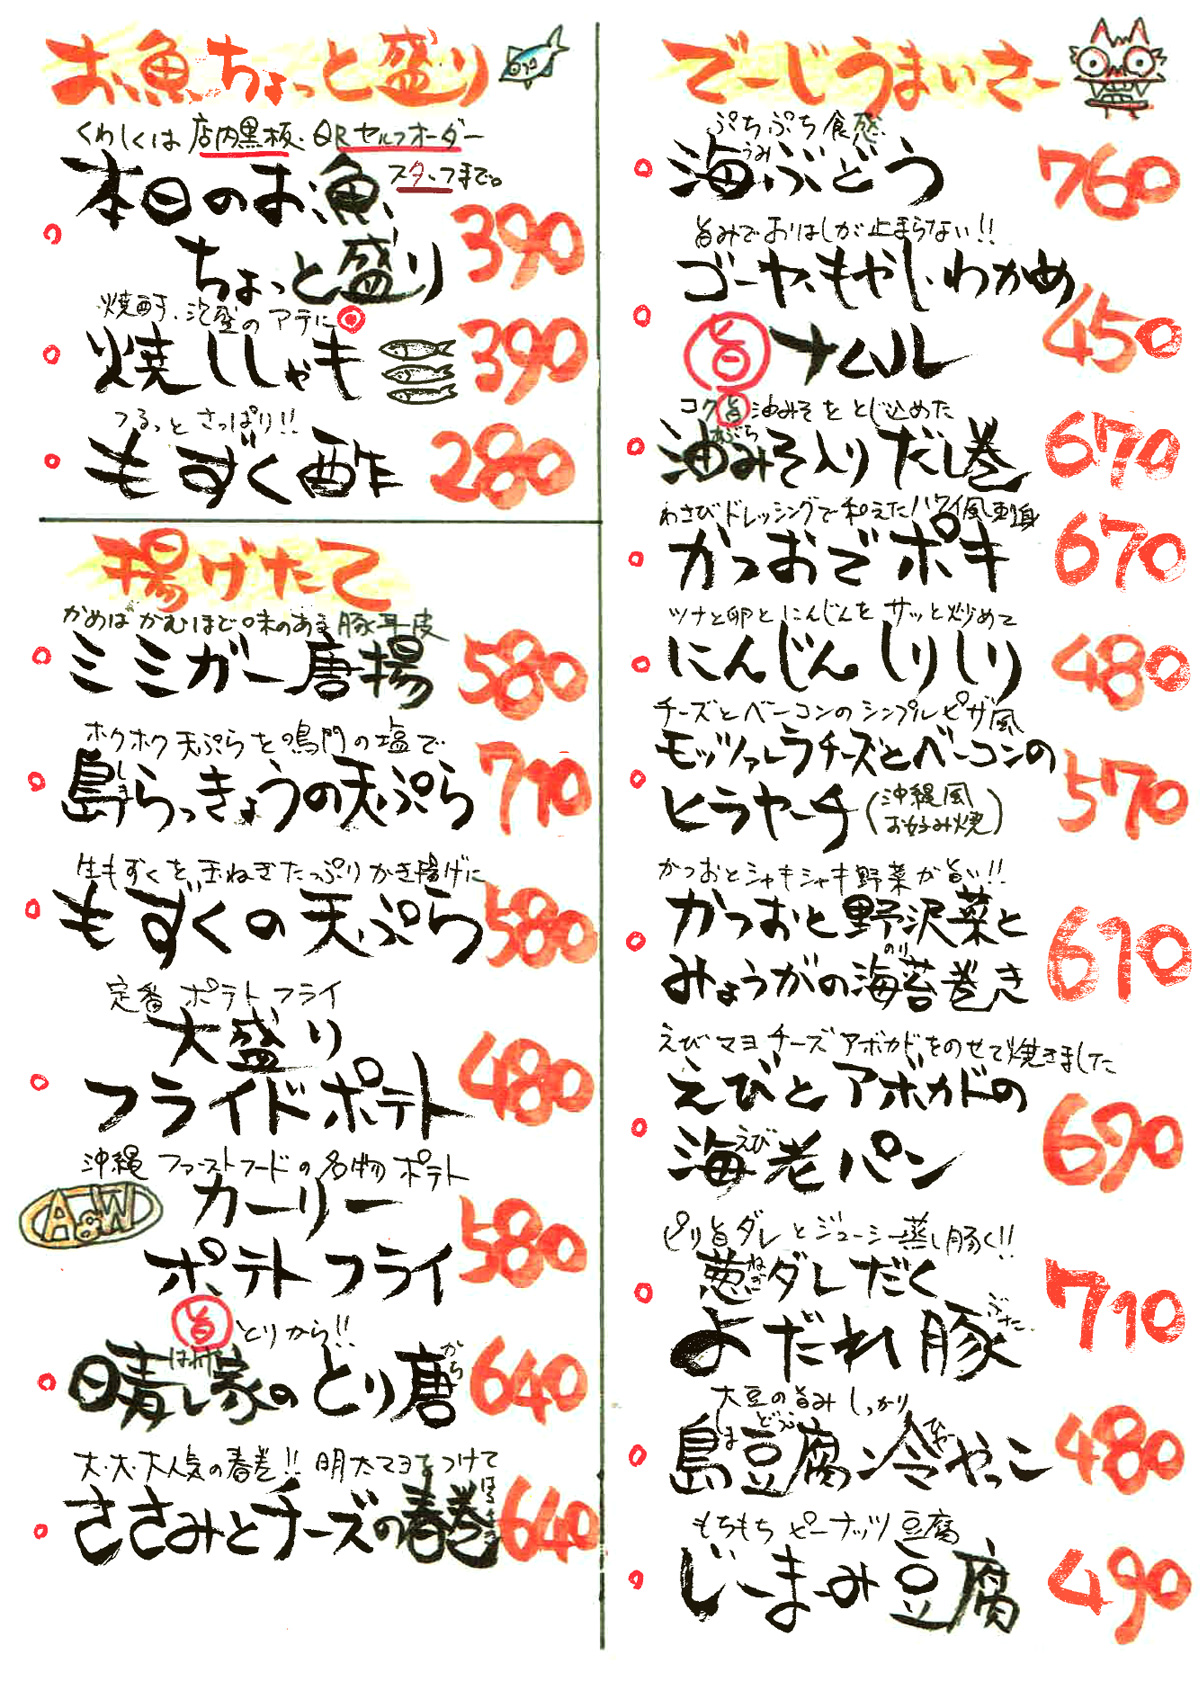 お魚ちょっと盛り
くわしくは店内黒板・QRセルフオーダー
スタッフまで。
本日のお魚
ちょっと盛り
390
焼酎、泡盛のアテに◎
焼ししゃも
390
つるっとさっぱり!!
もずく酢
280
揚げたて
かめばかむほど味のある豚耳皮
ミミガー唐揚
580
ホクホク天ぷらを鳴門の塩で
島らっきょうの天ぷら
しま
710
生もずくを玉ねぎたっぷりかき揚げに
もずくの天ぷら
580
定番ポテトフライ
大盛り
フライドポテト
480
沖縄ファーストフードの名物ポテト
A&W
カーリー
ポテトフライ
580
旨とりから!!
晴れし家のとり唐
640
大・大・大人気の春巻!!明太マヨをつけて
ささみとチーズの春巻
はるまき
640
でーじうまいさー
ぷちぷち食感
海ぶどう
うみ
760
旨みでおはしが止まらない!!
ゴーヤ、もやし、わかめ
旨ナムル
450
コク旨油みそをとじ込めた
油みそ入りだし巻
あぶら
670
わさびドレッシングで和えたハワイ風刺身
かつおでポキ
670
ツナと卵とにんじんをサッと炒めて
にんじんしりしり
480
チーズとベーコンのシンプルピザ風
モッツァレラチーズとベーコンの
ヒラヤーチ(沖縄風お好み焼)
570
かつおとシャキシャキ野菜が旨い!!
かつおと野沢菜と
みょうがの海苔巻き
のり
610
えびマヨチーズアボカドをのせて焼きました
えびとアボカドの
海老パン
えび
690
ピリ旨ダレとジューシー蒸し豚く!!
葱ダレだく
ねぎ
よだれ豚
ぶた
710
大豆の旨みしっかり
島豆腐ン冷やっこ
しま どうふ ひや
480
もちもちピーナッツ豆腐
じーまーみ豆腐
490